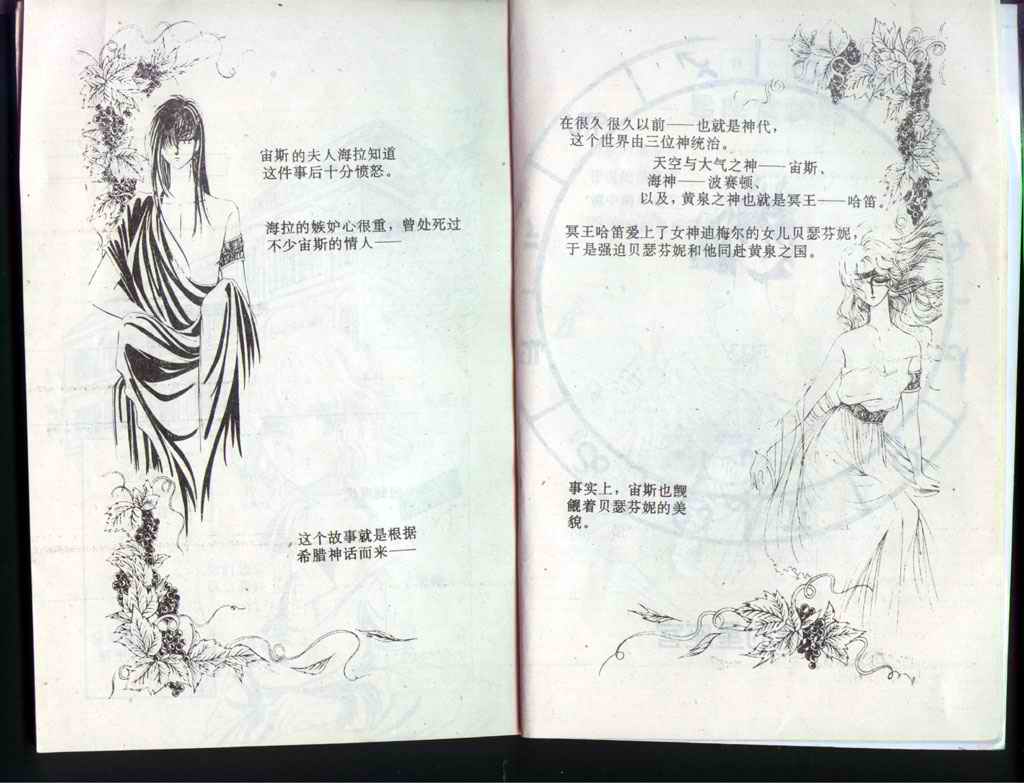 在很久很久以前——也就是神代，
这个世界由三位神统治。
天空与大气之神——宙斯、
海神——波赛顿、
以及，黄泉之神也就是冥王——哈笛。
冥王哈笛爱上了女神迪梅尔的女儿贝瑟芬妮，
于是强迫贝瑟芬妮和他同赴黄泉之国。
事实上，宙斯也觊
觎着贝瑟芬妮的美
貌。
宙斯的夫人海拉知道
这件事后十分愤怒。
海拉的嫉妒心很重，曾处死过
不少宙斯的情人——
这个故事就是根据
希腊神话而来——